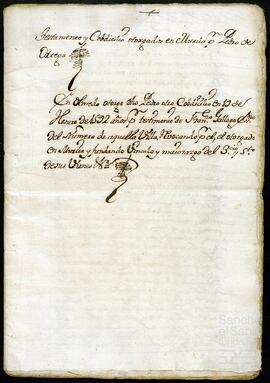 Testamento y Cobdicilio otorgados en Murcia pr Pedro de
Oztega
En Olmedo otorgó dho Pedro otro Cobdicilio en 13 de
Henero de 1592 años pr testimonio de Franco Gallego Sno
del Numero de aquella Villa, Rebocando pr el, el otorgado
en Murcia y fundando Vinculo y maiorazgo del 3o y 5o
de sus Vienes